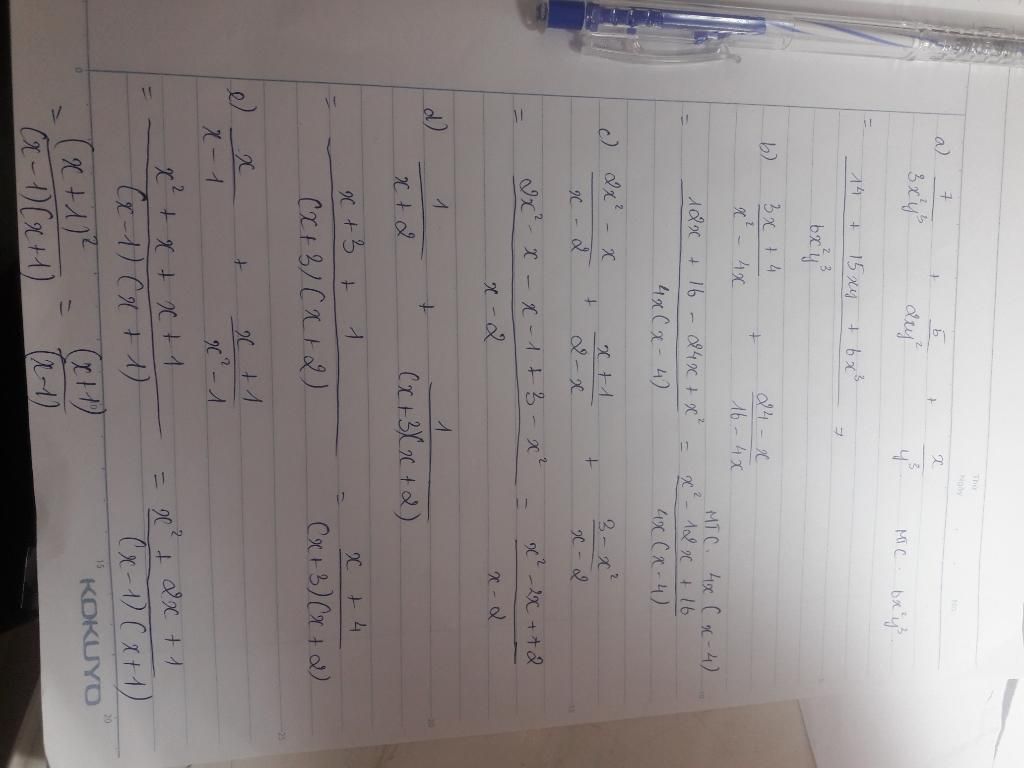 Thứ
Ngày
No.
a) 7/3x²y³ + 5/2xy² + x/y³. MTC. 6x²y³.
= 14 + 15xy + 6x³ / 6x²y³
b) 3x + 4 / x² - 4x + 24 - x / 16 - 4x MTC. 4x(x - 4)
= 12x + 16 - 24x + x² / 4x(x - 4) = x² - 12x + 16 / 4x(x - 4)
c) 2x² - x / x - 2 + x + 1 / 2 - x + 3 - x² / x - 2
= 2x² - x - x - 1 + 3 - x² / x - 2 = x² - 2x + 2 / x - 2
d) 1 / x + 2 + 1 / (x + 3)(x + 2)
= x + 3 + 1 / (x + 3)(x + 2) = x + 4 / (x + 3)(x + 2)
e) x / x - 1 + x + 1 / x² - 1
= x² + x + x + 1 / (x - 1)(x + 1) = x² + 2x + 1 / (x - 1)(x + 1)
= (x + 1)² / (x - 1)(x + 1) = (x + 1) / (x - 1)
KOKUYO